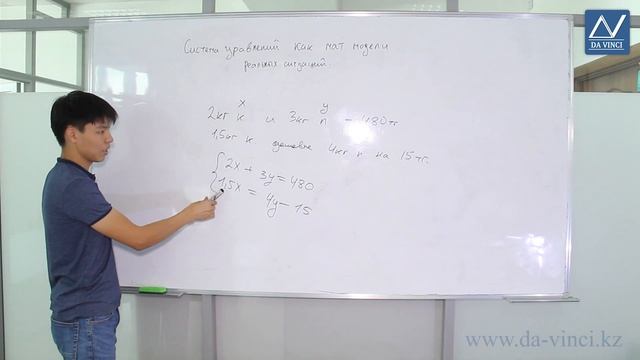 Система уравнений как мат модели
реальных ситуаций.
x y
2кг к и 3кг п – 480тг
1,5кг к дешевле 4кг п на 15тг.
2x + 3y = 480
1,5x = 4y – 15
DA VINCI
www.da-vinci.kz